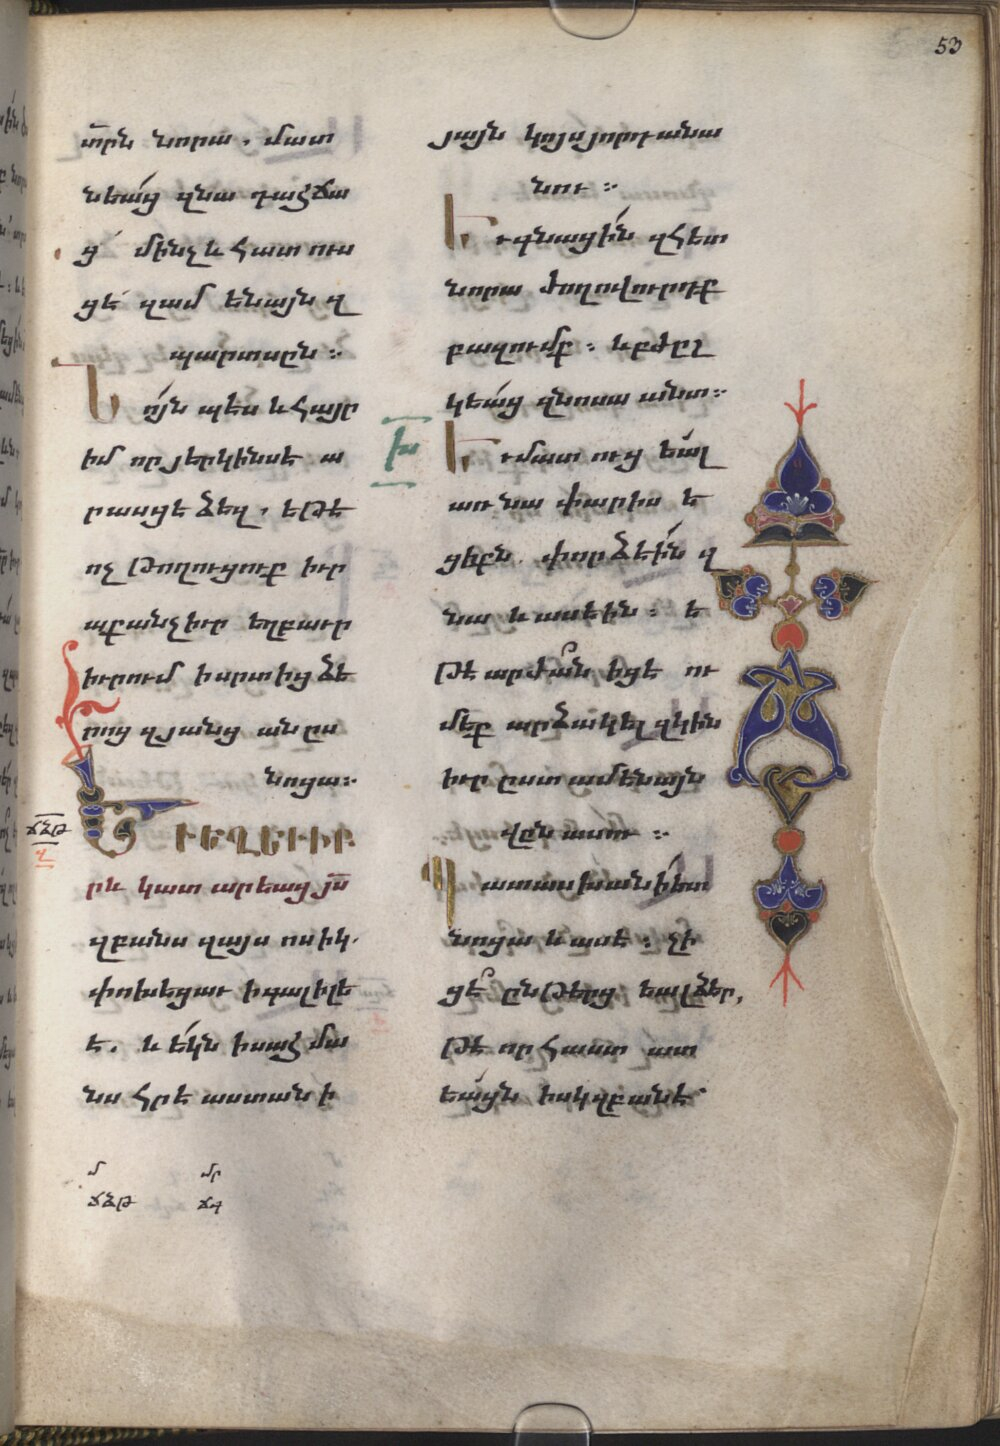 53
տ̅րն նորա. մատ
նեա́ց զնա դահճա
ց՛ մինչև հատուս
ցէ՛ զամենայն զ
պարտսըն ։
Ն ո́յնպէս և հայր
իմ որ յերկինս է ա
րասցէ ձեզ, եթէ
ոչ թողուցուք իւր
աքանչիւր եղբաւր
իւրում ի սրտից ձե
րոց զյանցանս
նոցա։
ՃՁԹ
Զ
Ե ՒԵՂԵՒԻԲ
րև կատարեաց յս̅
զբանս զայս ոսիկ.
փոխեցաւ ի գալիլե
է. և ե́կն ի սահմա
նս հրէաստանի
յայն կոյս յորդանա
նու ։
Ե ւ գնացի́ն զհետ
նորա ժողովուրդք
բազումք ։ և բժըշ
կեա́ց զնոսա անտ։
Խ
Ե ւ մատուցեա́լ
առ նա փարիսե
ցիքն. փորձէի́ն զ
նա և ասէին ։ ե
թէ արժա՞ն իցէ ու
մեք արձակել զկին
իւր ըստ ամենայն
վըն ասու ։
Պ ատասխանի ետ
նոցա և ասէ ։ չի
ցէ՞ ընթերցեալ ձեր,
թէ որ հաստատ
եա́ցն ի սկզբանէ՝
Մ Մր
ՃՁԹ ՃԺ